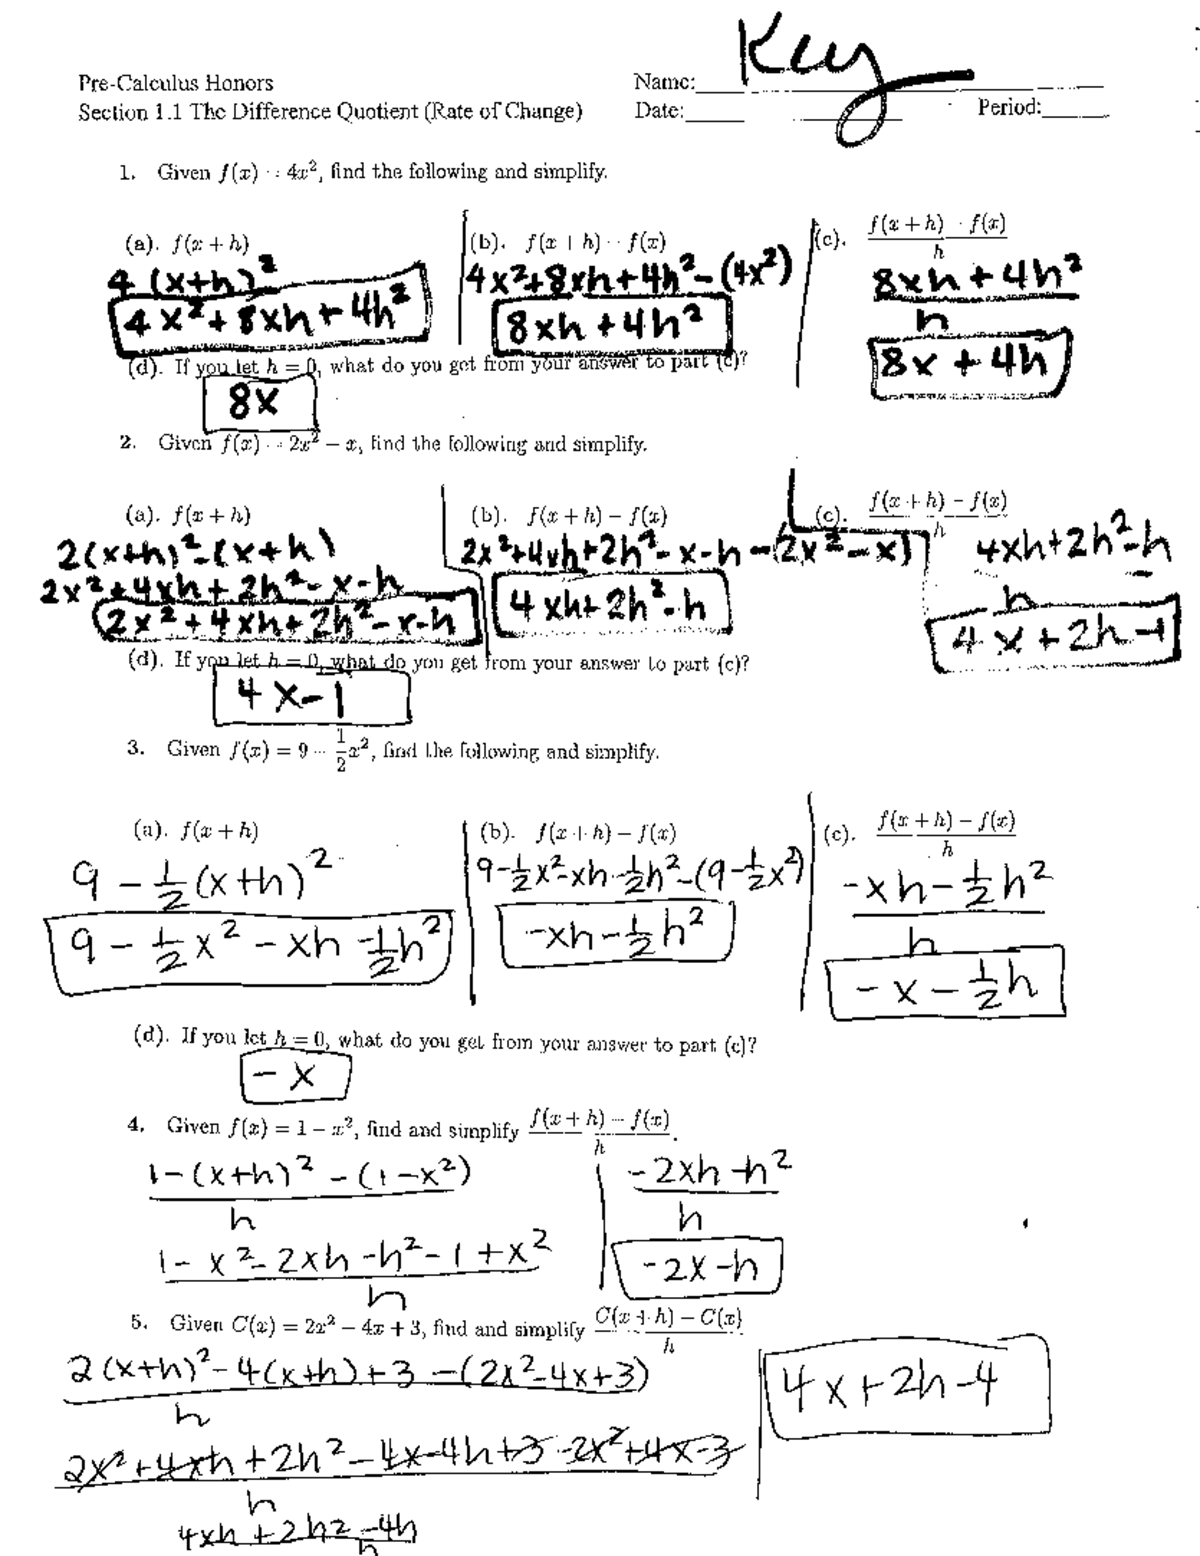 Key
Pre-Calculus Honors Name:
Section 1.1 The Difference Quotient (Rate of Change) Date: Period:
1. Given f(x) = 4x², find the following and simplify.
(a). f(x + h) (b). f(x + h) − f(x) (c). f(x + h) − f(x) / h
4(x+h)² 4x²+8xh+4h²-(4x²) 8xh+4h² / h
4x²+8xh+4h² 8xh+4h² 8x+4h
(d). If you let h = 0, what do you get from your answer to part (c)?
8x
2. Given f(x) = 2x² − x, find the following and simplify.
(a). f(x + h) (b). f(x + h) − f(x) (c). f(x + h) − f(x) / h
2(x+h)²-(x+h) 2x²+4xh+2h²-x-h-(2x²-x) 4xh+2h²-h / h
2x²+4xh+2h²-x-h
2x²+4xh+2h²-x-h 4xh+2h²-h 4x+2h-1
(d). If you let h = 0, what do you get from your answer to part (c)?
4x-1
3. Given f(x) = 9 − 1/2 x², find the following and simplify.
(a). f(x + h) (b). f(x + h) − f(x) (c). f(x + h) − f(x) / h
9-1/2(x+h)² 9-1/2x²-xh-1/2h²-(9-1/2x²) -xh-1/2h² / h
9-1/2x²-xh-1/2h² -xh-1/2h² -x-1/2h
(d). If you let h = 0, what do you get from your answer to part (c)?
-x
4. Given f(x) = 1 − x², find and simplify f(x + h) − f(x) / h .
1-(x+h)²-(1-x²) / h -2xh-h² / h
1-x²-2xh-h²-1+x² / h -2x-h
5. Given C(x) = 2x² − 4x + 3, find and simplify C(x + h) − C(x) / h
2(x+h)²-4(x+h)+3-(2x²-4x+3) / h 4x+2h-4
2x²+4xh+2h²-4x-4h+3-2x²+4x-3 / h
4xh+2h2-4h / h